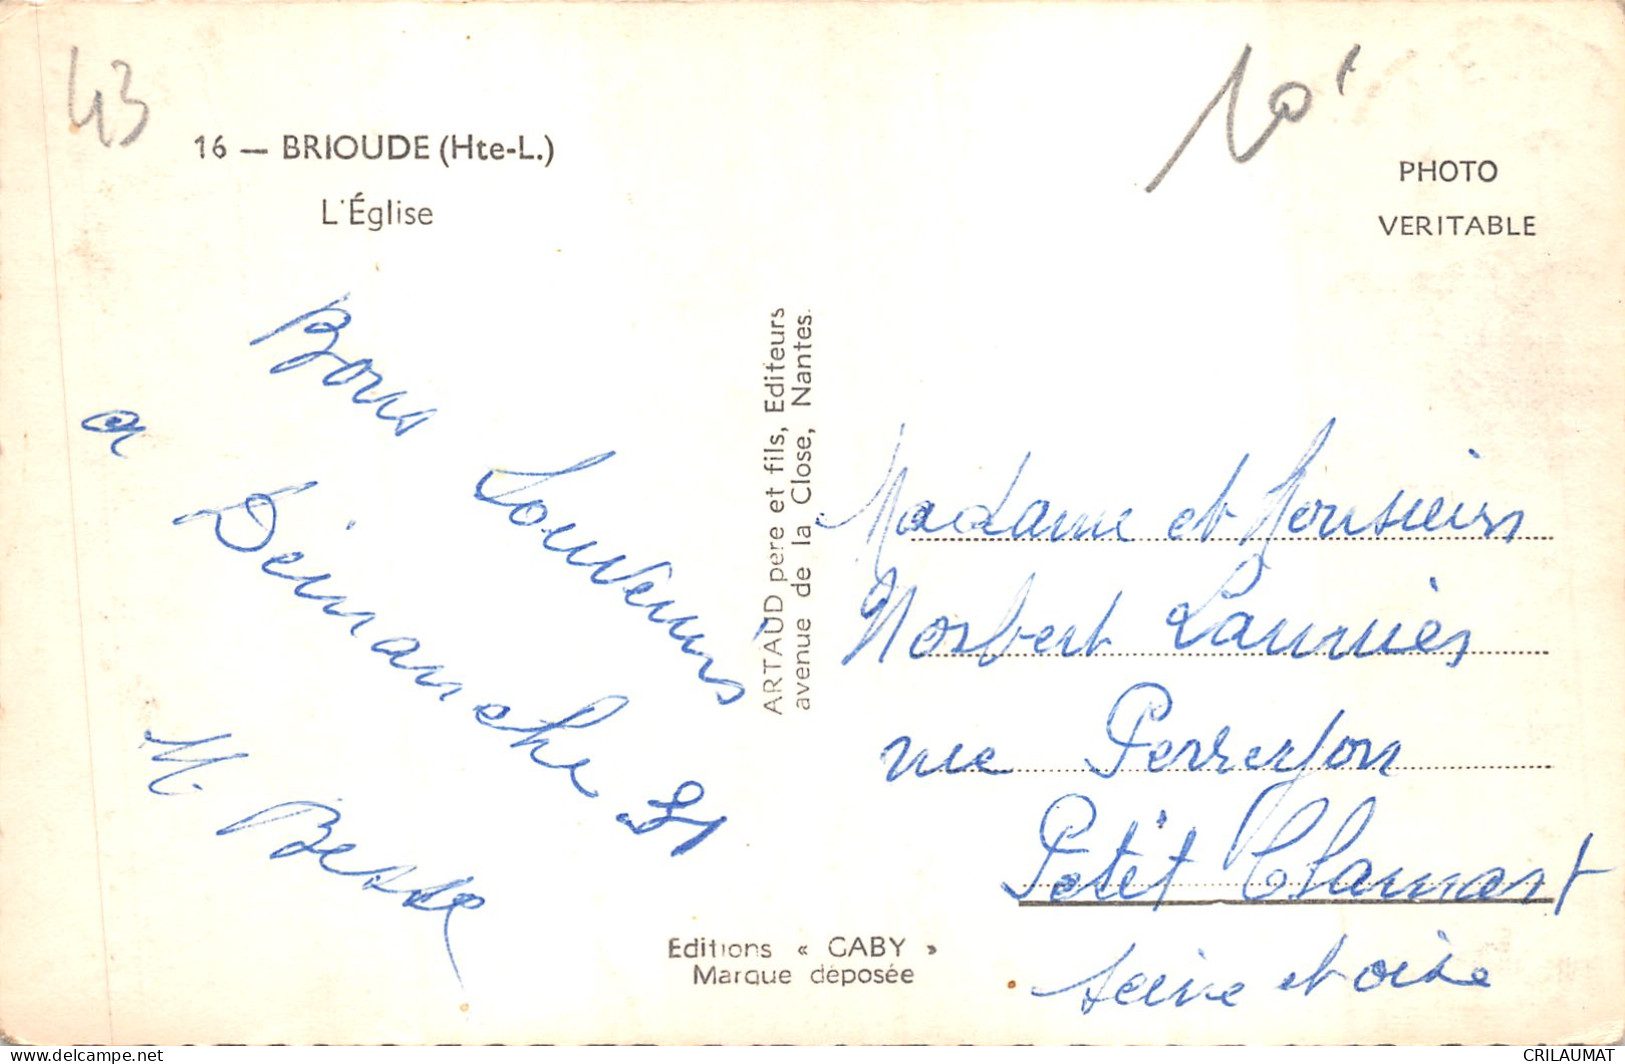 43
16 — BRIOUDE (Hte-L.)
L'Église
10f
PHOTO
VERITABLE
Bons Souvenirs
a Dimanche
M. Besse
ARTAUD père et fils, Editeurs
avenue de la Close, Nantes.
Madame et Monsieur
Norbert
rue
Petit Clamart
seine et oise
Editions « GABY »
Marque déposée
www.delcampe.net
CRILAUMAT